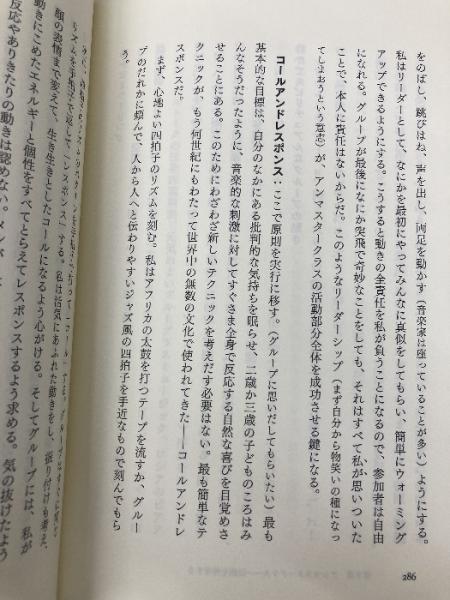 をのばし、跳びはね、声を出し、両足を動かす（音楽家は座っていることが多い）ようにする。
私はリーダーとして、なにかを最初にやってみんなに真似をしてもらい、簡単にウォーミング
アップできるようにする。こうすると動きの全責任を私が負うことになるので、参加者は自由
になれる。グループが最後になにか突飛で奇妙なことをしても、それはすべて私が思いついた
ことで、本人に責任はないからだ。このようなリーダーシップ（まず自分から物笑いの種になっ
てしまおうという意志）が、アンマスタークラスの活動部分全体を成功させる鍵になる。
コールアンドレスポンス：ここで原則を実行に移す。（グループに思いだしてもらいたい）最も
基本的な目標は、自分のなかにある批判的な気持ちを眠らせ、二歳か三歳の子どものころはみ
んなそうだったように、音楽的な刺激に対してすぐさま全身で反応する自然な喜びを目覚めさ
せることにある。このためにわざわざ新しいテクニックを考えだす必要はない。最も簡単なテ
クニックが、もう何世紀にもわたって世界中の無数の文化で使われてきた——コールアンドレ
スポンスだ。
まず、心地よい四拍子のリズムを刻む。私はアフリカの太鼓を打つテープを流すか、グルー
プのだれかに頼んで、人から人へと伝わりやすいジャズ風の四拍子を手近なもので刻んでもら
う。
リズムを手拍子で返して「レスポンス」する。私は活気にあふれた動きをし、振り付けも考え、
顔の表情まで変えて、生き生きとしたコールになるよう心がける。そしてグループには、私が
動きにこめたエネルギーと個性をすべてとらえてレスポンスするよう求める。気の抜けたよう
反応やありきたりの動きは認めない。
286